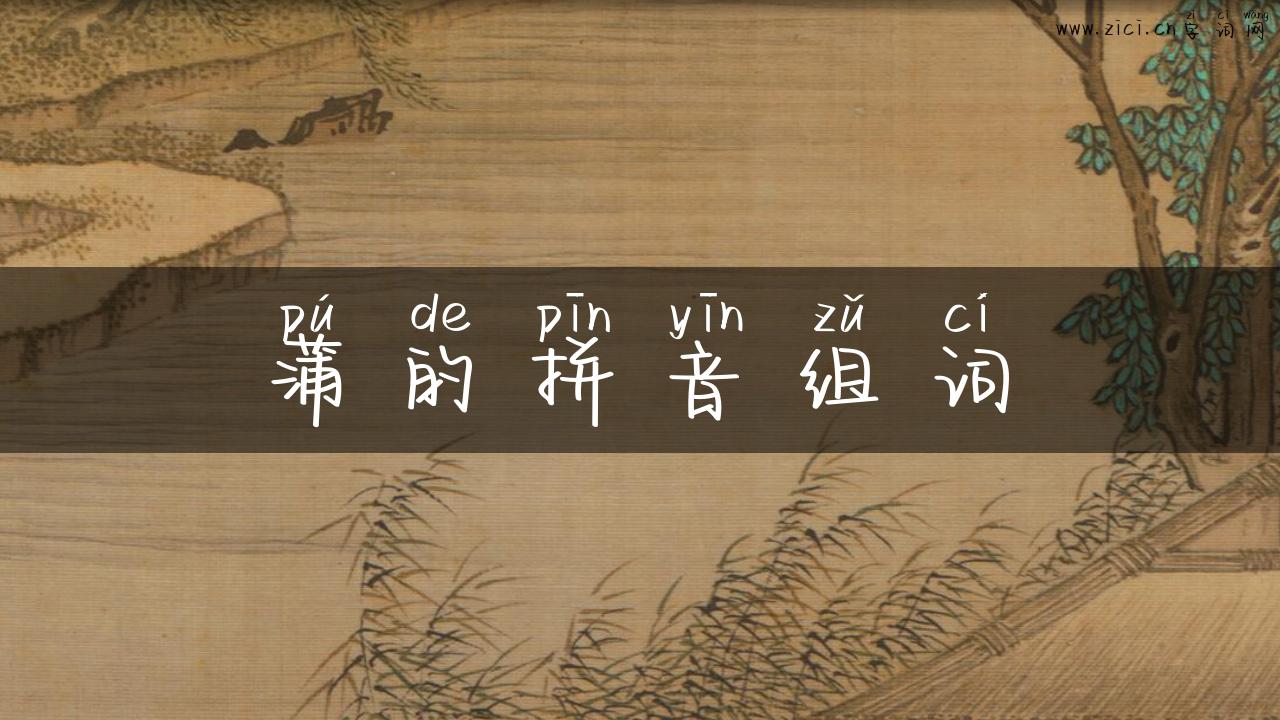 zì cí wǎng
www.zici.cn 字词网
pú de pīn yīn zǔ cí
蒲的拼音组词